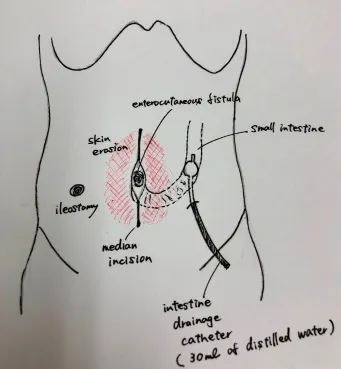 enterocutaneous fistula
skin
erosion
small intestine
ileostomy
median
incision
intestine
drainage
catheter
(30ml of distilled water)